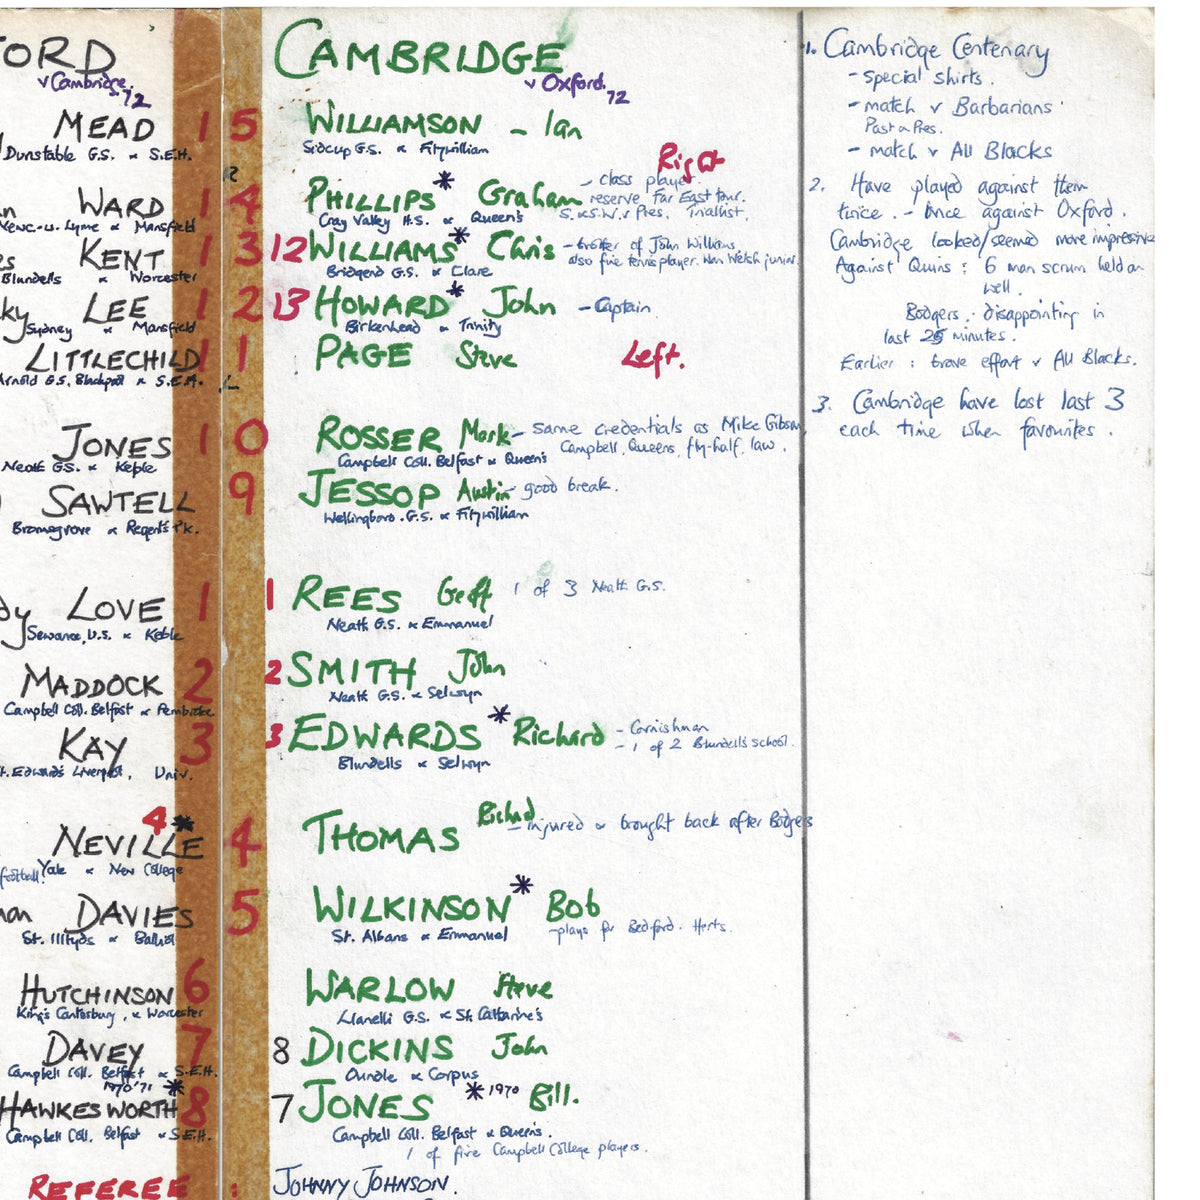 ORD
v Cambridge, 72
MEAD 15
Dunstable G.S. & S.E.H.
WARD 14
Newc-u-Lyme & Mansfield
KENT 13
Blundells & Worcester
ky LEE 12
Sydney & Mansfield
LITTLECHILD 11
Arnold G.S. Blackpool & S.E.H. L
JONES 10
Neath G.S. & Keble
SAWTELL 9
Bromsgrove & Regent's Pk.
dy LOVE 1
Sewanee, U.S. & Keble
MADDOCK 2
Campbell Coll. Belfast & Pembroke
KAY 3
St. Edward's Liverpool, Univ.
4 *
NEVILLE 4
football. Yale & New College
DAVIES 5
St. Illtyds & Balliol
HUTCHINSON 6
King's Canterbury, & Worcester
DAVEY 7
Campbell Coll. Belfast & S.E.H.
1970 '71 *
HAWKESWORTH 8
Campbell Coll. Belfast & S.E.H.
REFEREE :
CAMBRIDGE
v Oxford, 72
WILLIAMSON - Ian
Sidcup G.S. & Fitzwilliam
Right
PHILLIPS * Graham - class player
reserve Far East tour.
Cray Valley H.S. & Queen's S. & S.W. v Pres. Triallist.
12 WILLIAMS * Chris - brother of John Williams
also fine tennis player. Won Welsh junior.
Bridgend G.S. & Clare
13 HOWARD * John - Captain
Birkenhead & Trinity
PAGE Steve Left.
ROSSER Mark - same credentials as Mike Gibson,
Campbell, Queens, fly-half, law.
Campbell Coll. Belfast & Queen's
JESSOP Austin - good break.
Wellingboro. G.S. & Fitzwilliam
1 REES Geff 1 of 3 Neath G.S.
Neath G.S. & Emmanuel
2 SMITH John
Neath G.S. & Selwyn
3 EDWARDS * Richard - Cornishman
- 1 of 2 Blundell's school.
Blundells & Selwyn
THOMAS Richard - injured & brought back after Bodgers
WILKINSON * Bob
- plays for Bedford. Herts.
St. Albans & Emmanuel
WARLOW Steve
Llanelli G.S. & St. Catharine's
8 DICKINS John
Oundle & Corpus
7 JONES * 1970 Bill.
Campbell Coll. Belfast & Queen's.
1 of five Campbell College players.
JOHNNY JOHNSON.
1. Cambridge Centenary
- special shirts.
- match v Barbarians
Past & Pres.
- match v All Blacks
2. Have played against them
twice. - once against Oxford.
Cambridge looked/seemed more impressive
Against Quins : 6 man scrum held on
well.
Bodgers : disappointing in
last 25 minutes.
Earlier : brave effort v All Blacks.
3. Cambridge have lost last 3
each time when favourites.